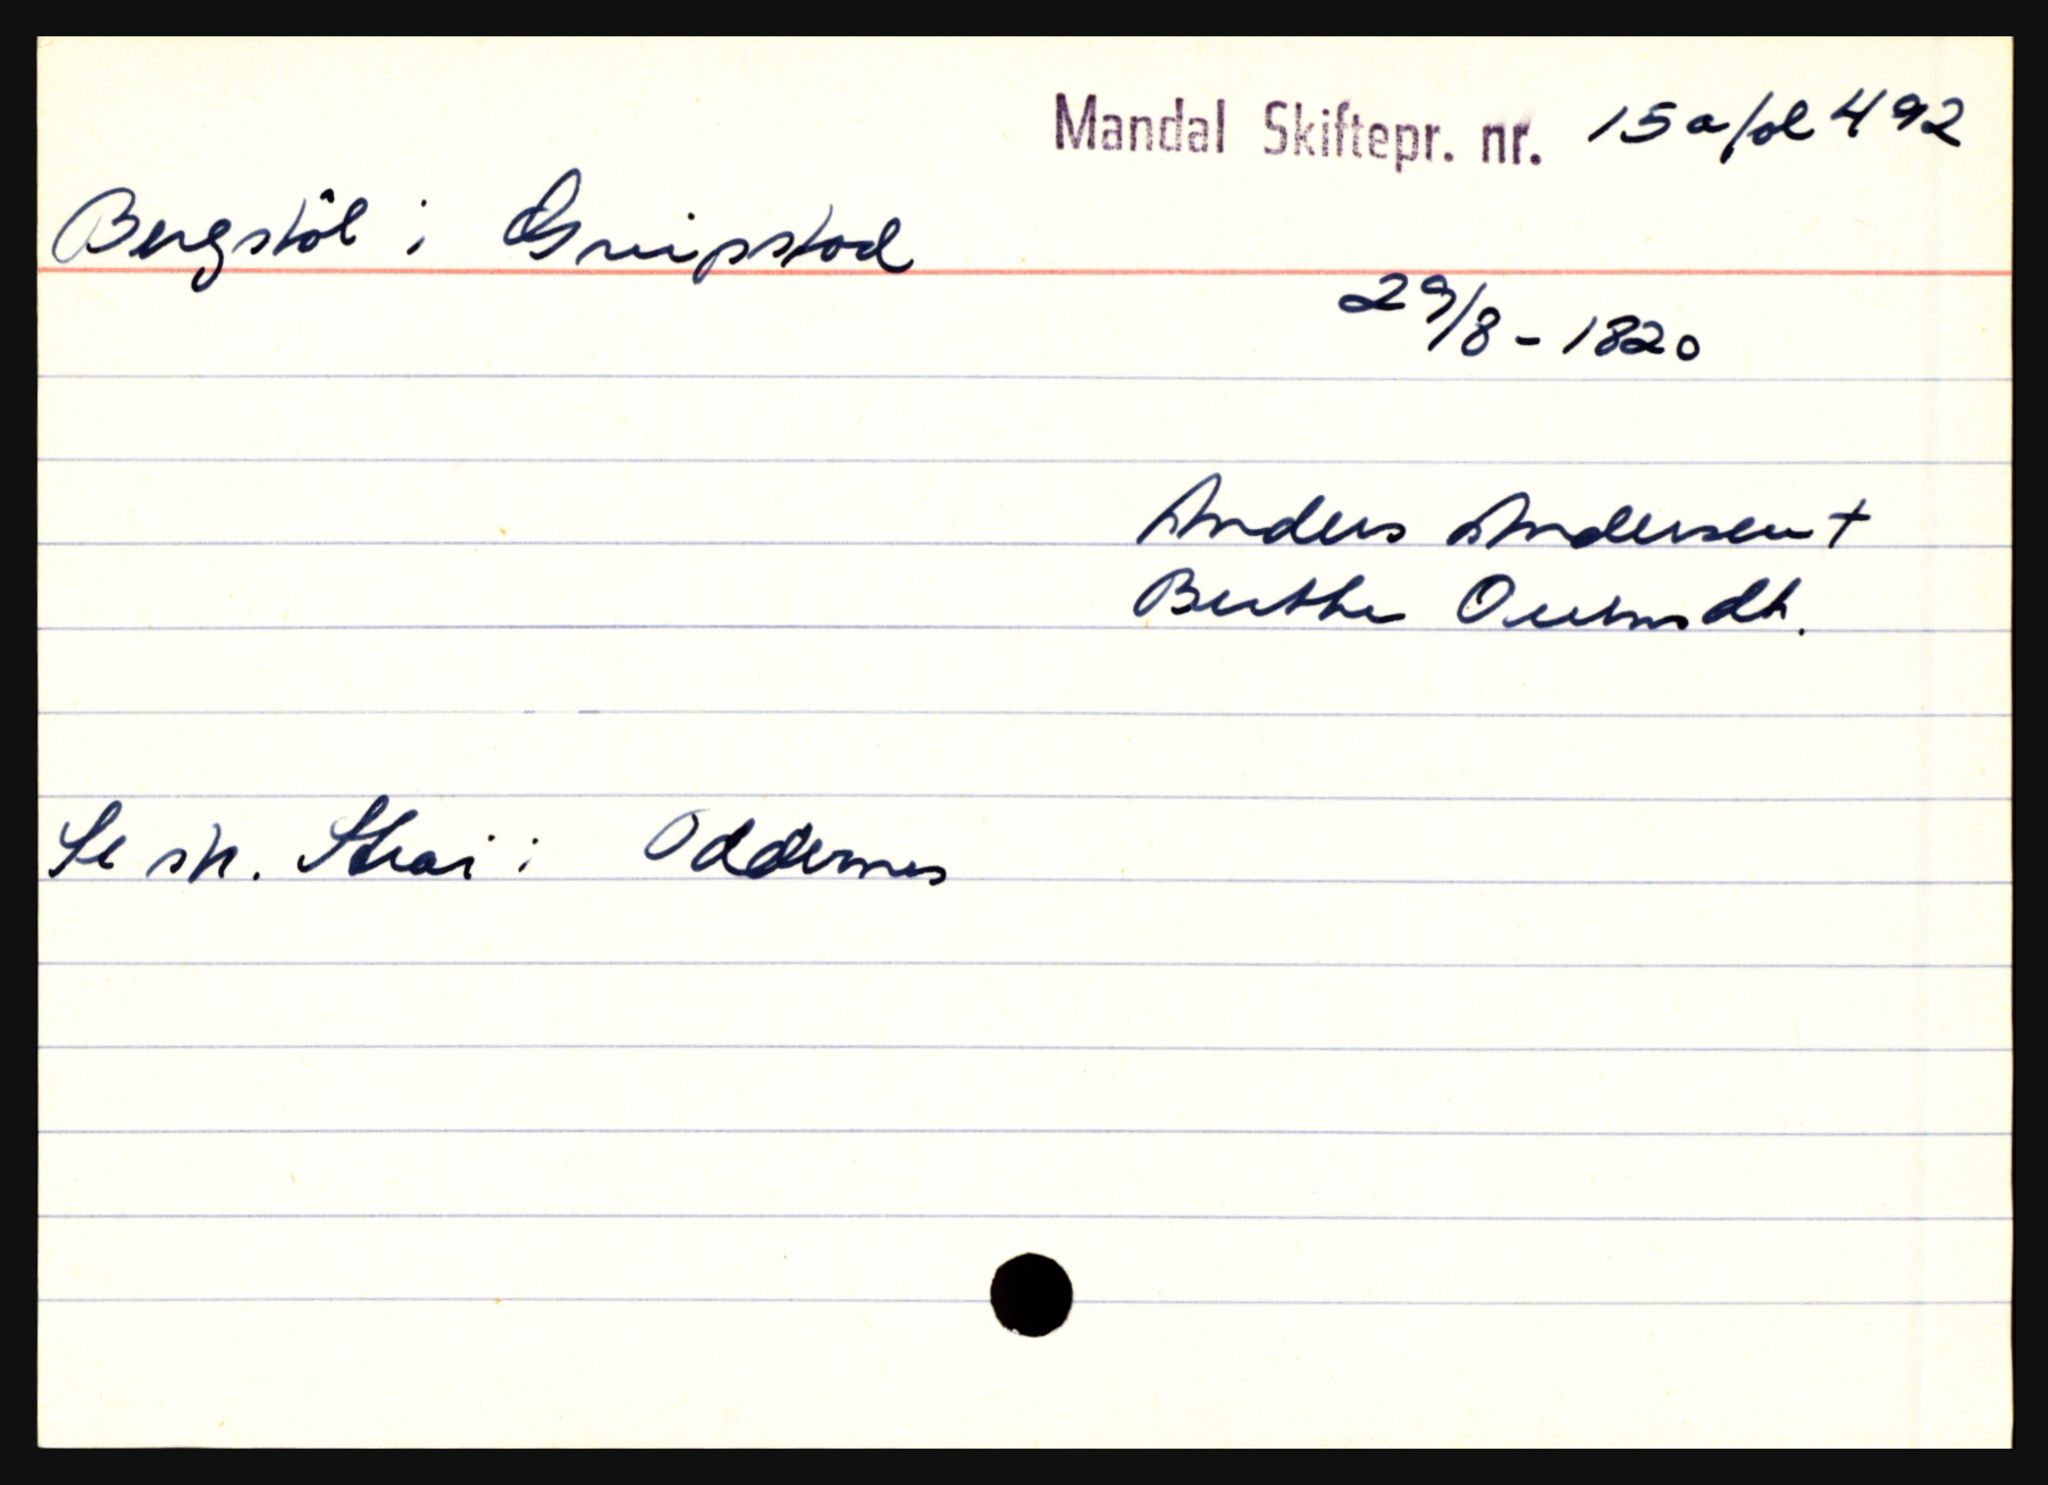 Mandal Skiftepr. nr. 15a fol 492
Bergstöl i Greipstad
29/8-1820
Anders Andersen +
Berthe dh.
Se sk. Strai i Oddernes